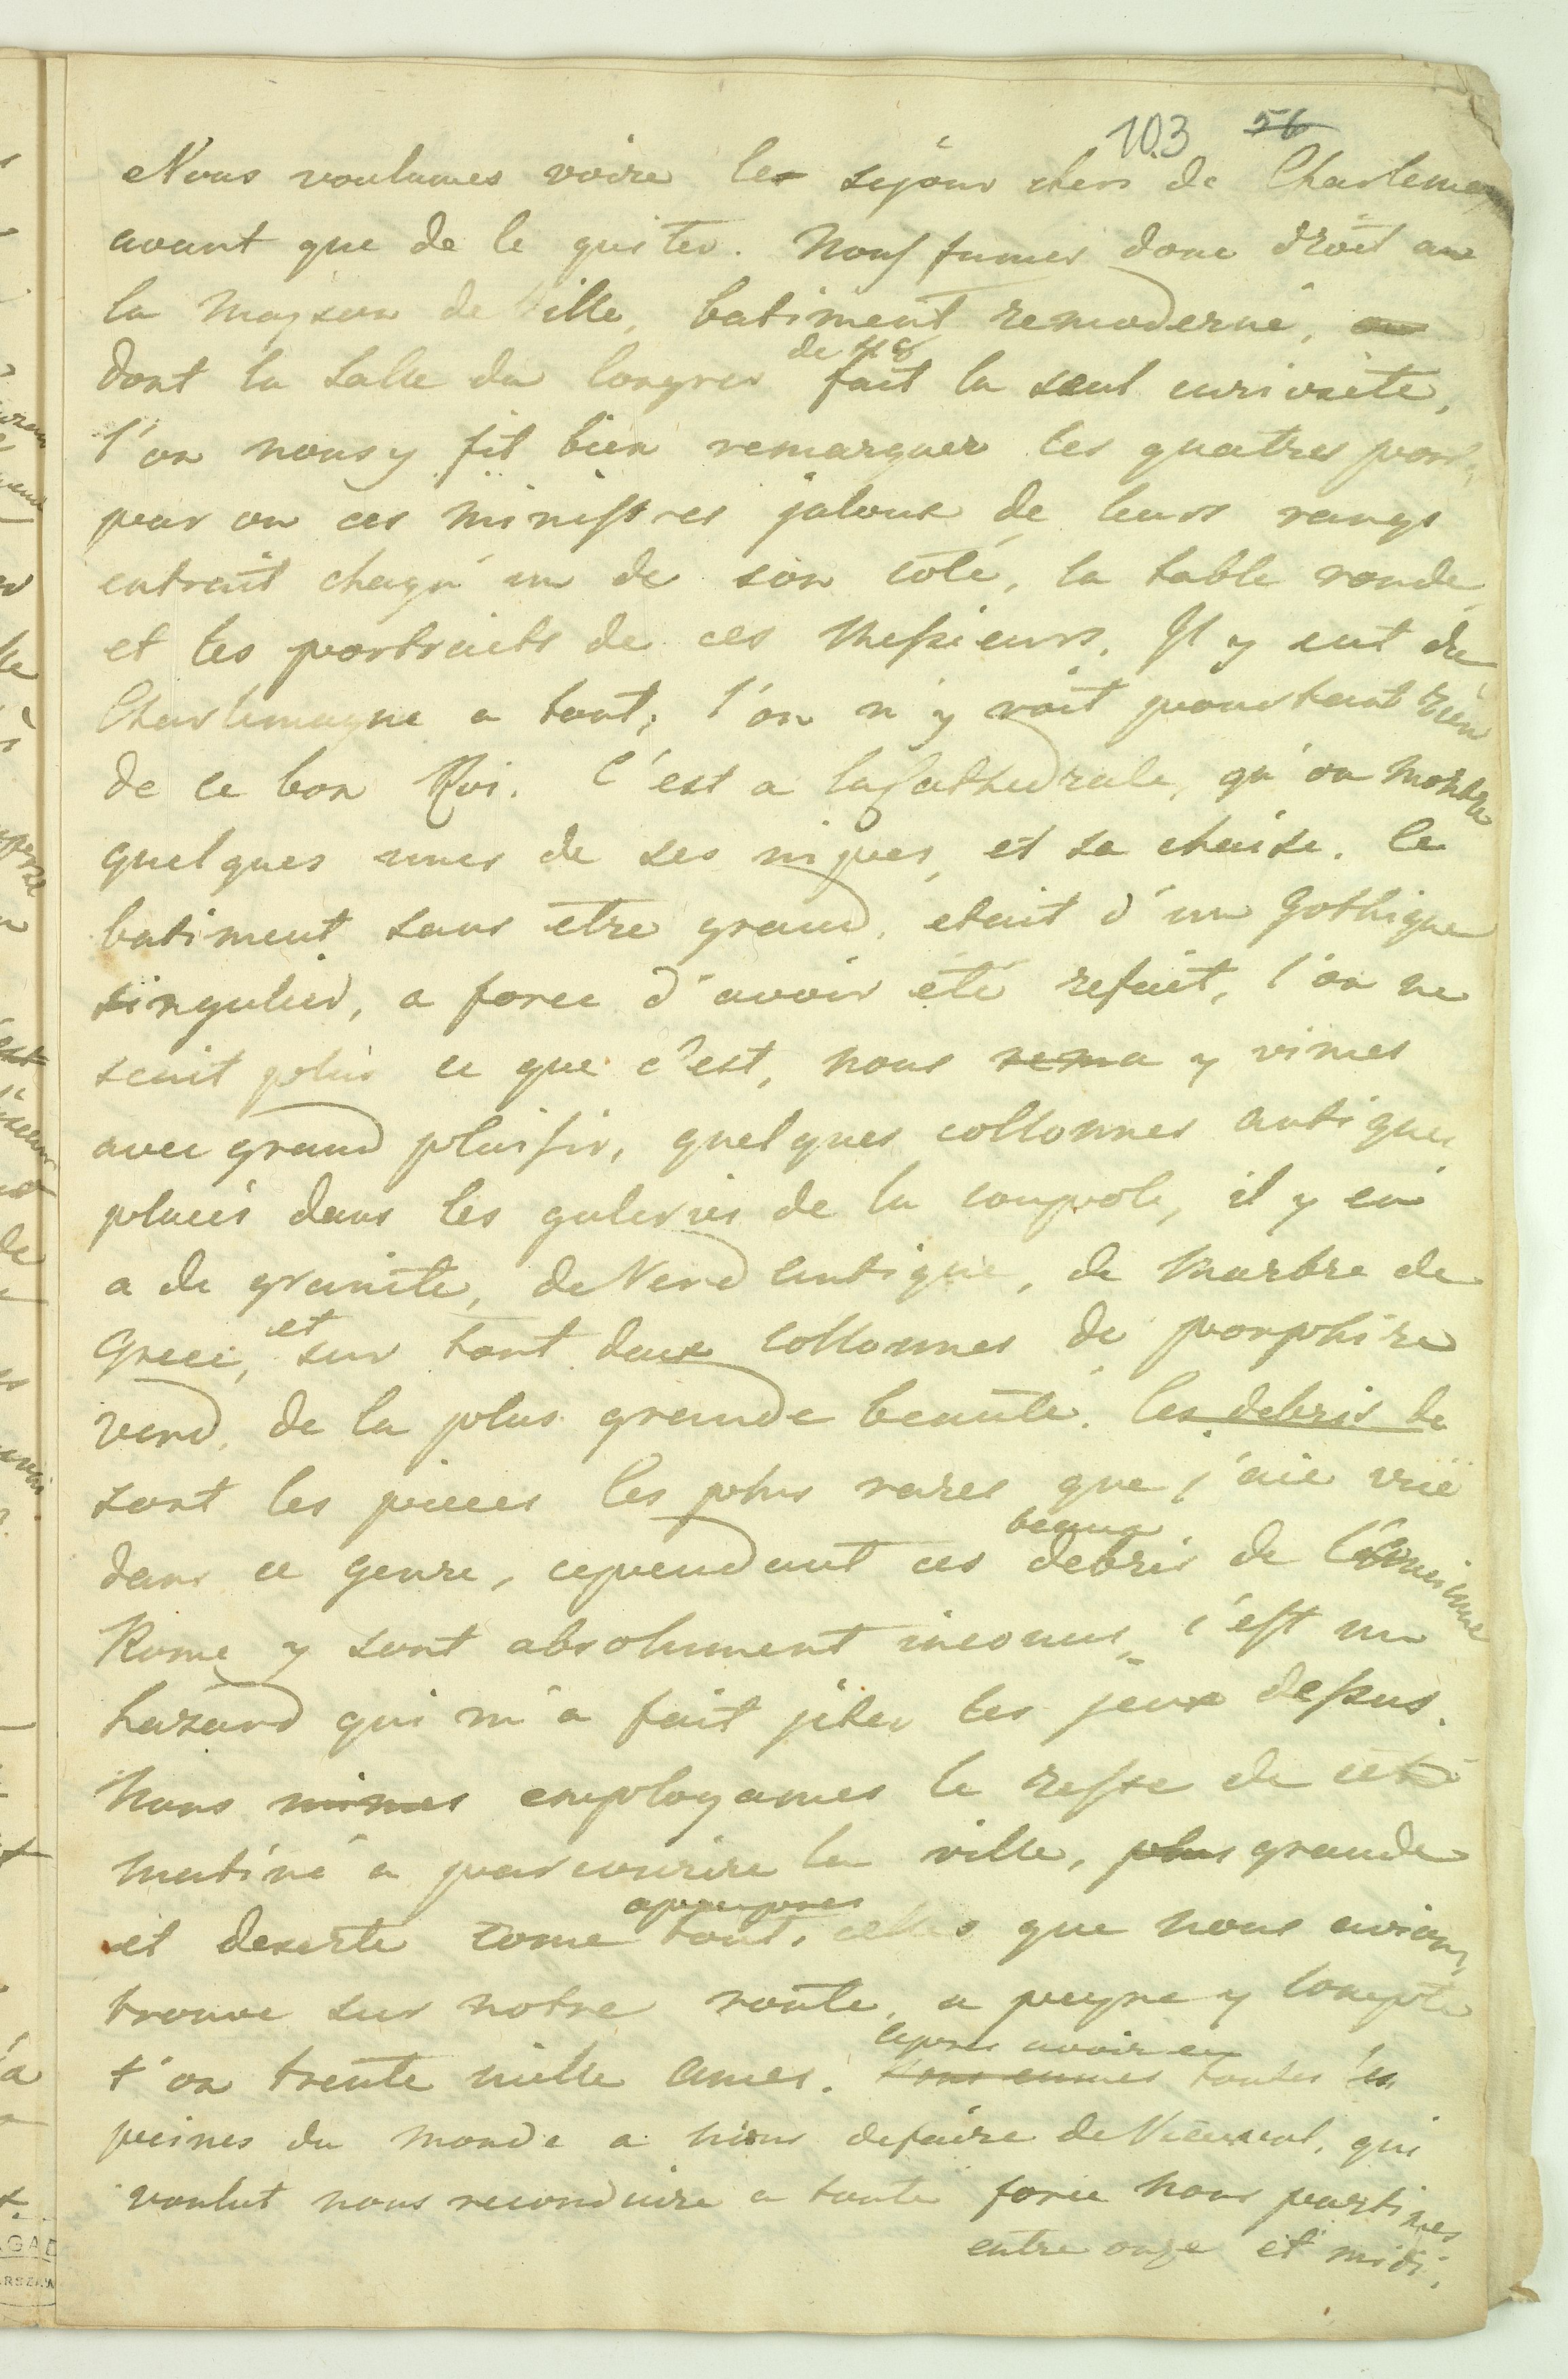 103 56
Nous voulumes voire le sejour chers de Charlemag
avant que de le quiter. Nous fumes donc droit au
la Mayson de Ville, batiment remoderné,
de 48
dont la Salle du Congres fait la seul curiosité,
l'on nous y fit bien remarquer les quatres port,
par ou ces Ministres jaloux de leurs rangs
entrait chaqu'un de son coté, la table ronde
et les portraits de ces Messieurs. Il y eut du
Charlemagne a tout, l'on n'y voit pourtant rien
de ce bon Roi. C'est a la Cathedrale, qu'on montre
quelques unes de ses nipes, et sa chaise. Ce
batiment sans etre grand, etait d'un Gothique
singulier, a force d'avoir été refait, l'on ne
scait plus ce que c'est, nous rema y vimes
avec grand plaisir, quelques collonnes antiques
placés dans les galeries de la coupole, il y en
a de granite, de Verd antique, de Marbre de
Grece, et sur tout deux collonnes de porphire
verd, de la plus grande beauté. les debris de
sont les pieces les plus rares que j'aie vüe
beaux
dans ce genre, cependant ces debris de l'ancienne
Rome y sont absolument inconus, c'est un
hazard qui m'a fait jeter les jeux dessus.
Nous mimes employames le reste de cete
matiné a parcourire la ville, plus grande
apeupres
et deserte come tout, celles que nous avions
trouve sur notre route, a peyne y compte
apres avoir eu
t'on trente mille ames. Nous eumes toutes les
peines du monde a nous defaire de, qui
voulut nous reconduire a toute force nous partimes
entre onze et midi.